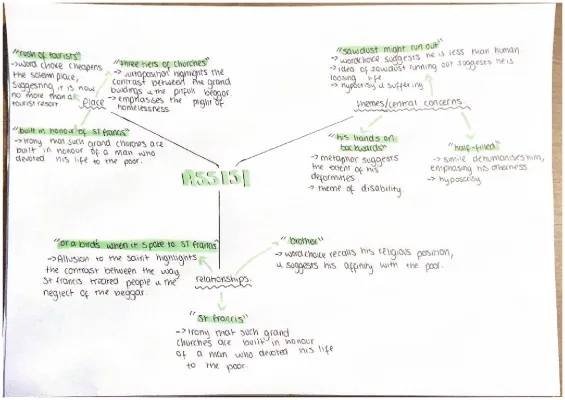 "rush of tourists"
-> word choice cheapens
the solemn place,
suggesting it is now
no more than a
tourist resort.
place
"three tiers of churches"
-> juxtaposition highlights the
contrast between the grand
buildings u the pitiful beggar
-> emphasises the plight of
homelessness.
"built in honour of St Francis"
-> Irony that such grand churches are
built in honour of a man who
devoted his life to the poor.
"sawdust might run out"
-> wordchoice suggests he is less than human
-> idea of sawdust running out suggests he is
loosing life
-> hypocrisy u suffering
themes/central concerns
"his hands on
backwards"
-> metaphor suggests
the extent of his
deformities
-> theme of disability.
"half-filled"
-> simile dehumanises him,
emphasing his otherness
-> hypocrisy
ASSISI
"or a bird's when it spoke to St Francis"
-> Allusion to the saint highlights
the contrast between the way
St Francis treated people u the
neglect of the beggar.
relationships.
"brother"
-> wordchoice recalls his religious position,
u suggests his affinity with the poor.
"St Francis"
-> Irony that such grand
churches are built in honour
of a man who devoted his life
to the poor.